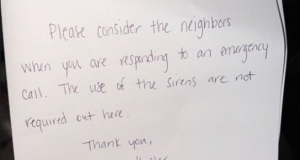 Please consider the neighbors
when you are responding to an emergency
call. The use of the sirens are not
required out here.
Thank you,